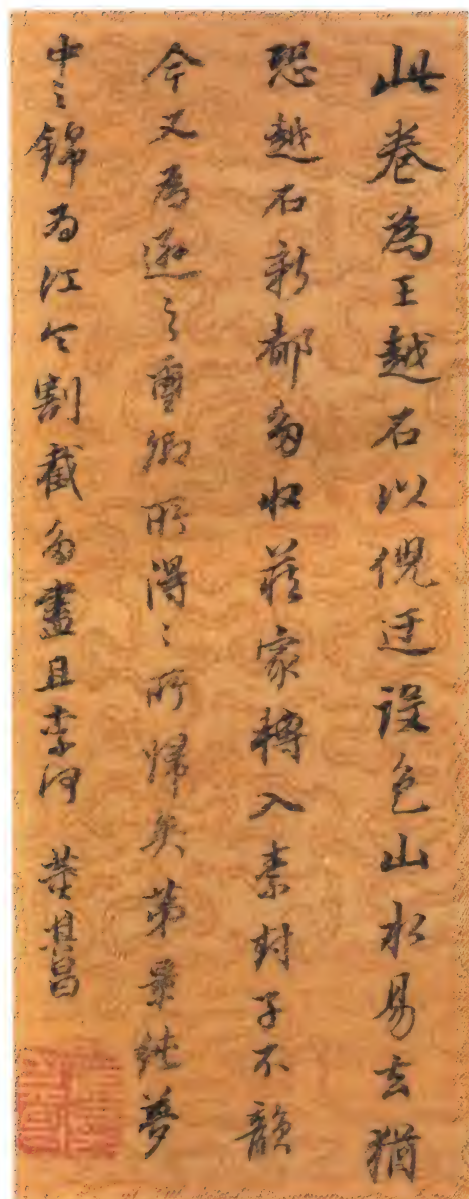 此卷為王越石以倪迂設色山水易去猶
恐越石新都多收藏家轉入素封子不韻
今又為遜之璽卿所得得所歸矣第景純夢
中之錦為江令割截多盡且柰何 董其昌